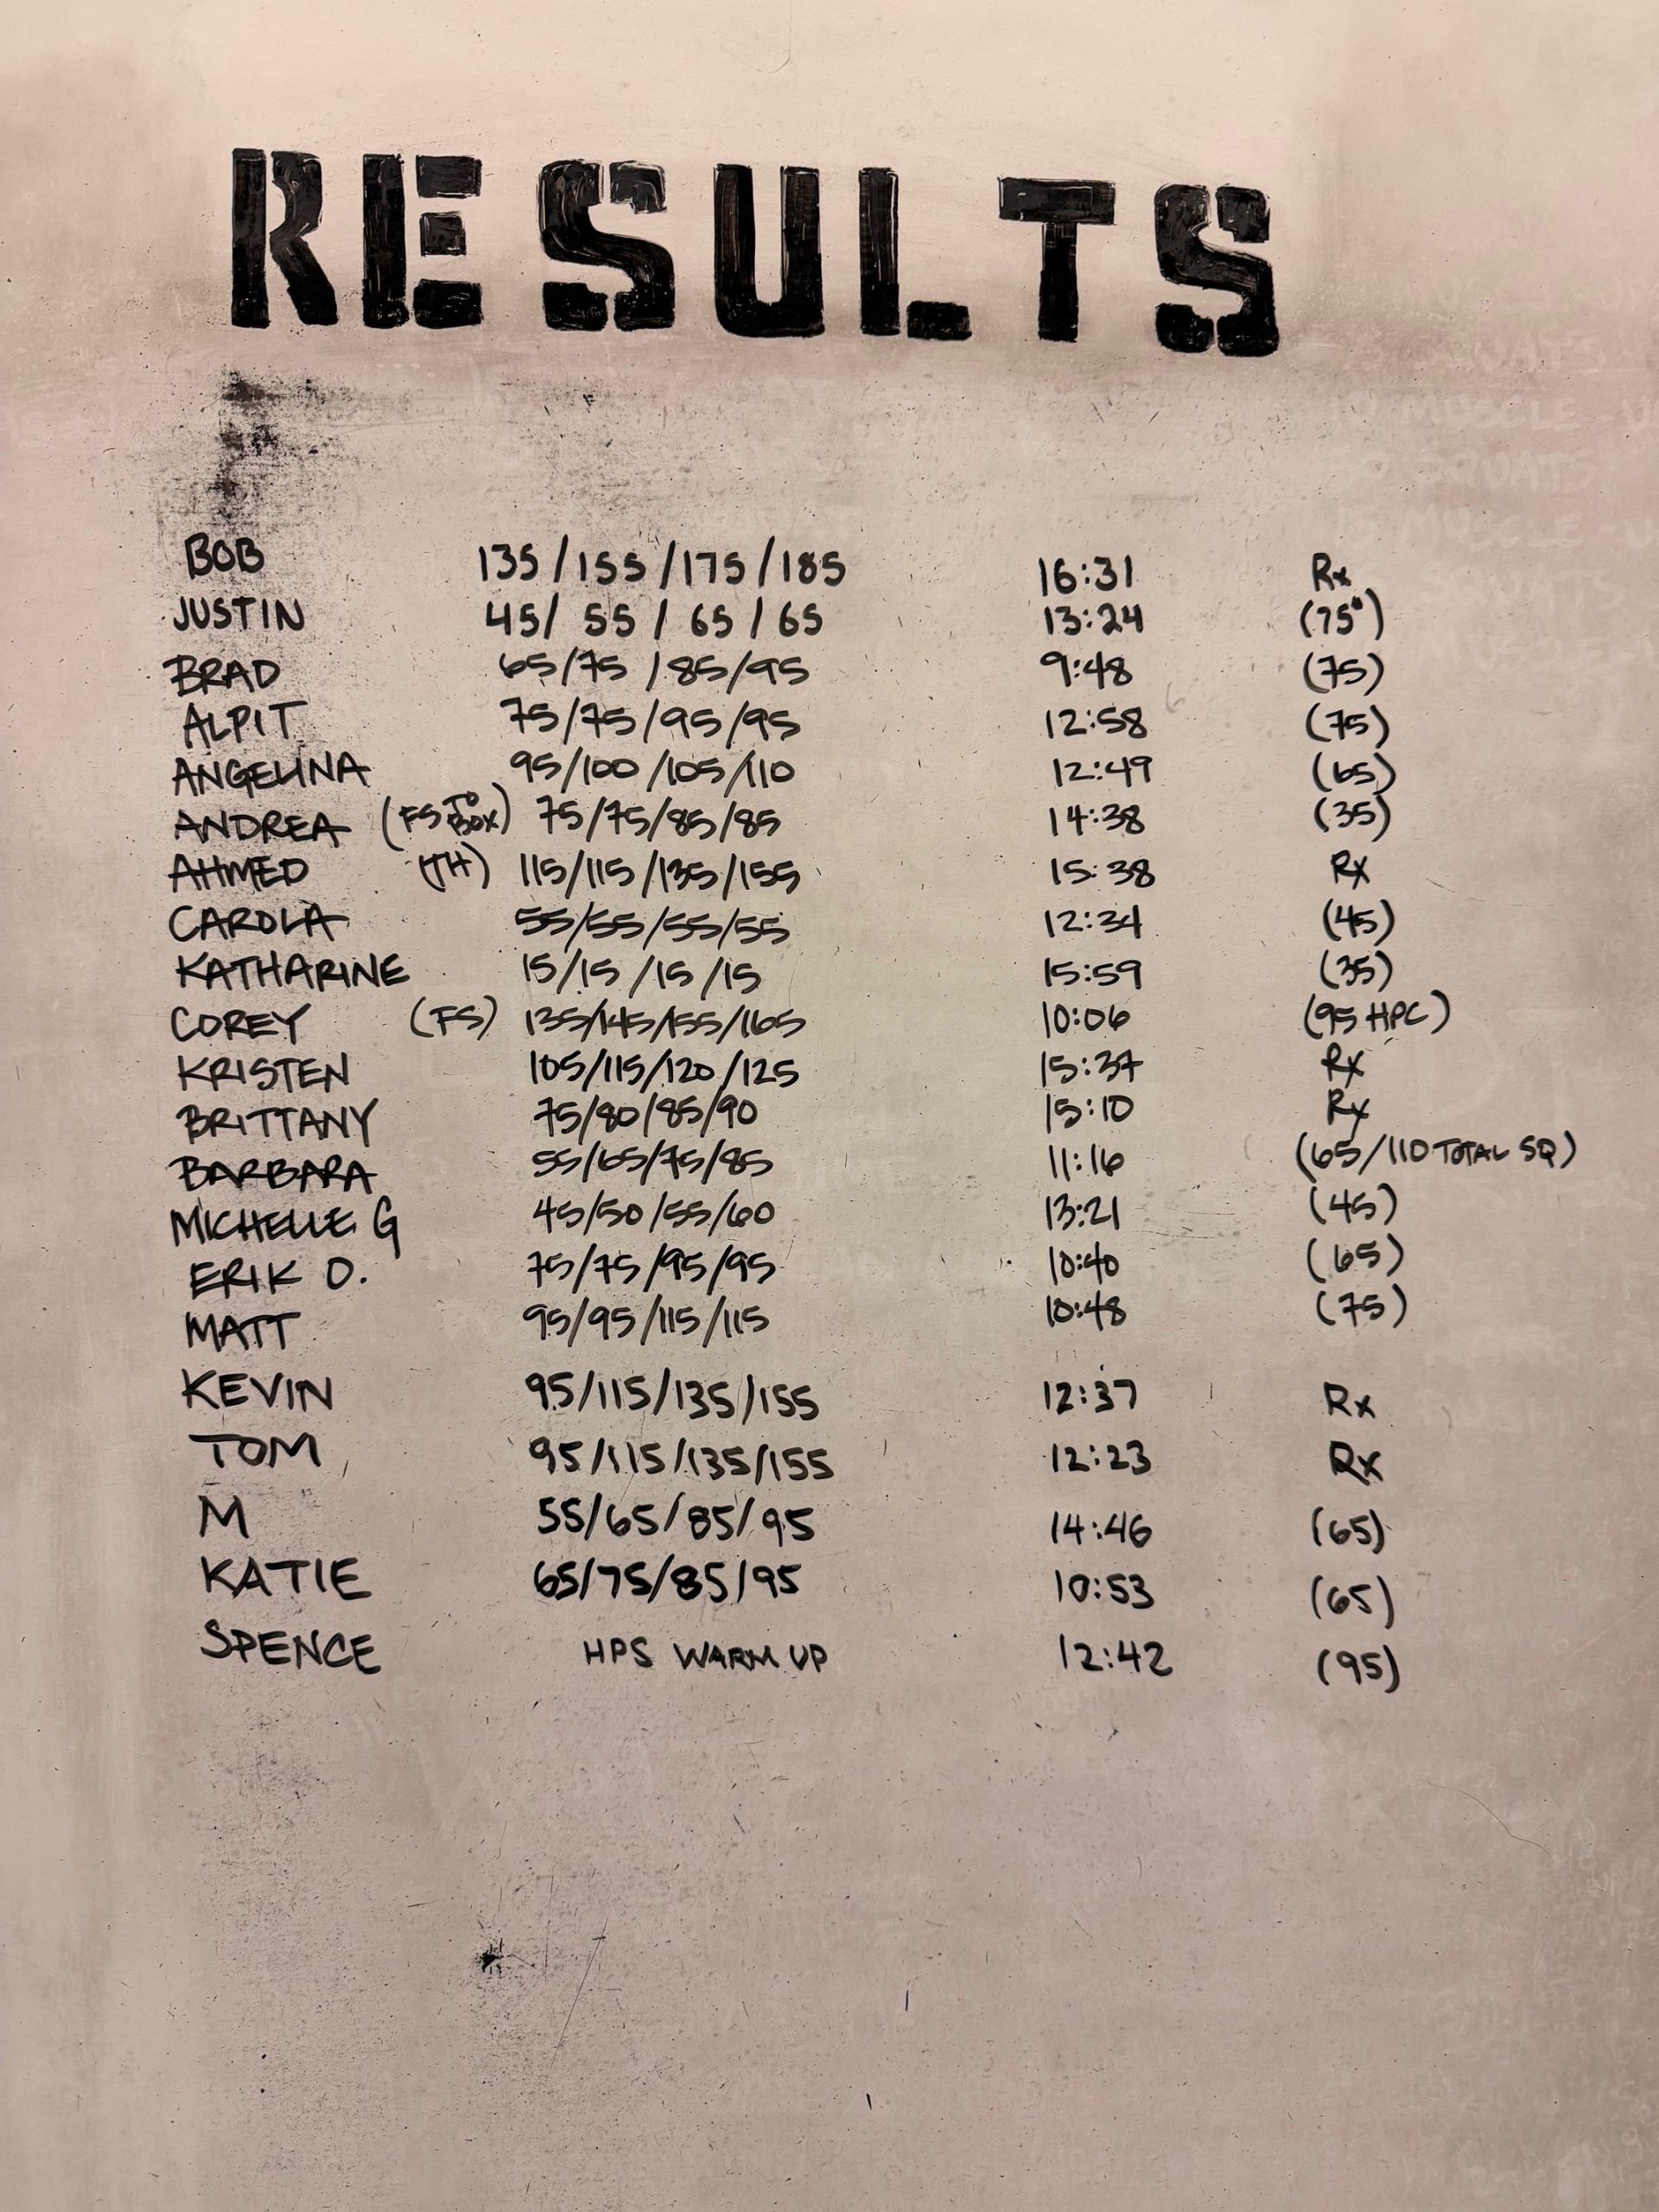 RESULTS
BOB 135/155/175/185 16:31 Rx
JUSTIN 45/55/65/65 13:24 (75*)
BRAD 65/75/85/95 9:48 (75)
ALPIT 75/75/95/95 12:58 (75)
ANGELINA 95/100/105/110 12:49 (65)
ANDREA (FS TO BOX) 75/75/85/85 14:38 (35)
AHMED (TH) 115/115/135/155 15:38 Rx
CAROLA 55/55/55/55 12:34 (45)
KATHARINE 15/15/15/15 15:59 (35)
COREY (FS) 135/145/155/165 10:06 (95 HPC)
KRISTEN 105/115/120/125 15:37 Rx
BRITTANY 75/80/85/90 15:10 Rx
BARBARA 55/65/75/85 11:16 (65/110 TOTAL SQ)
MICHELLE G 45/50/55/60 13:21 (45)
ERIK O. 75/75/95/95 10:40 (65)
MATT 95/95/115/115 10:48 (75)
KEVIN 95/115/135/155 12:37 Rx
TOM 95/115/135/155 12:23 Rx
M 55/65/85/95 14:46 (65)
KATIE 65/75/85/95 10:53 (65)
SPENCE HPS WARM UP 12:42 (95)